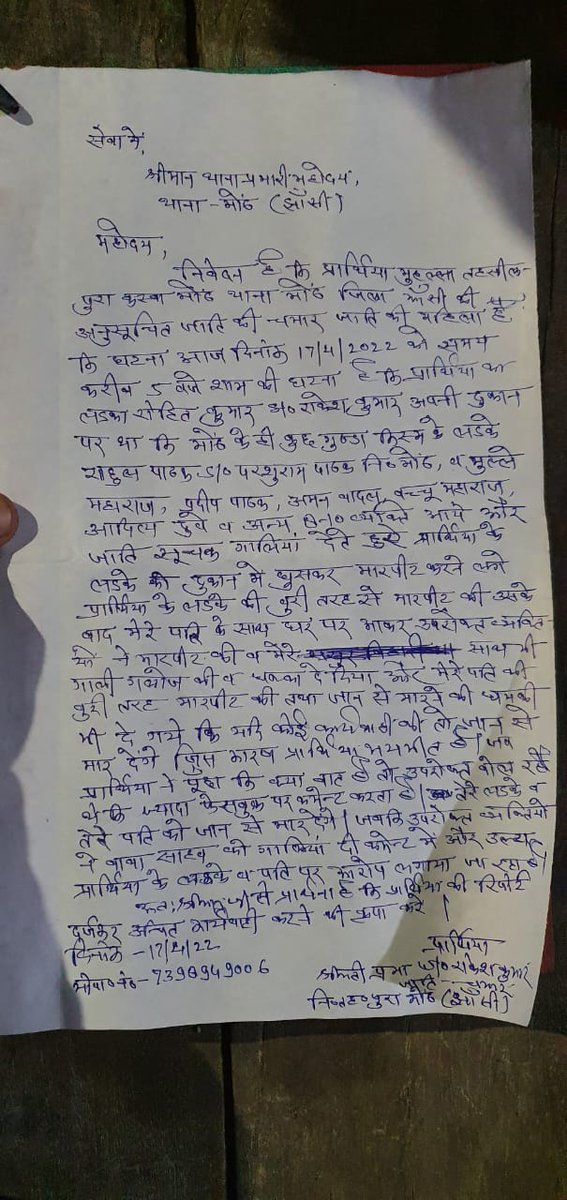 सेवा में,
श्रीमान थाना प्रभारी महोदय,
थाना - मोंठ (झाँसी)
महोदय,
निवेदन है कि प्रार्थिया मुहल्ला तहसील-
पुरा कस्बा मोंठ थाना मोंठ जिला झाँसी की
अनुसूचित जाति की चमार जाति की महिला हैं
कि घटना आज दिनांक 17/4/2022 को समय
करीब 5 बजे शाम की घटना है कि प्रार्थिया का
लडका रोहित कुमार s/o राकेश कुमार अपनी दुकान
पर था कि मोंठ के ही कुछ गुण्डा किस्म के लडके
राहुल पाठक s/o परशुराम पाठक नि० मोंठ, व मुल्ले
महाराज, प्रदीप पाठक, अमन बादल, बच्चू महाराज,
आदित्य दुबे व अन्य 8-10 व्यक्ति आये और
जाति सूचक गालियां देते हुए प्रार्थिया के
लडके की दुकान में घुसकर मारपीट करने लगे
प्रार्थिया के लडके की बुरी तरह से मारपीट की उसके
बाद मेरे पति के साथ घर पर आकर उपरोक्त व्यक्ति-
यों ने मारपीट की व मेरे साथ भी
गाली गलौज की व धक्का दे दिया और मेरे पति की
बुरी तरह मारपीट की तथा जान से मारने की धमकी
भी दे गये कि यदि कोई कार्यवाही की तो जान से
मार देंगे जिस कारण प्रार्थिया भयभीत है। जब
प्रार्थिया ने पूछा कि क्या बात है तो उपरोक्त बोल रहे
थे कि ज्यादा फेसबुक पर कमेन्ट करता है। तेरे लडके व
तेरे पति को जान से मार देंगे। जबकि उपरोक्त व्यक्तियो
ने बाबा साहब को गालियां दी कमेन्ट में और उल्टा
प्रार्थिया के लडके व पति पर आरोप लगाया जा रहा है।
अतः श्रीमान जी से प्रार्थना है कि प्रार्थिया की रिपोर्ट
दर्ज कर उचित कार्यवाही करने की कृपा करें।
दिनांक - 17/4/22
प्रार्थिया
मोबा० नं०- 7398949006
श्रीमती प्रभा w/o राकेश कुमार
जाति - चमार
नि० तह० पुरा मोंठ (झाँसी)